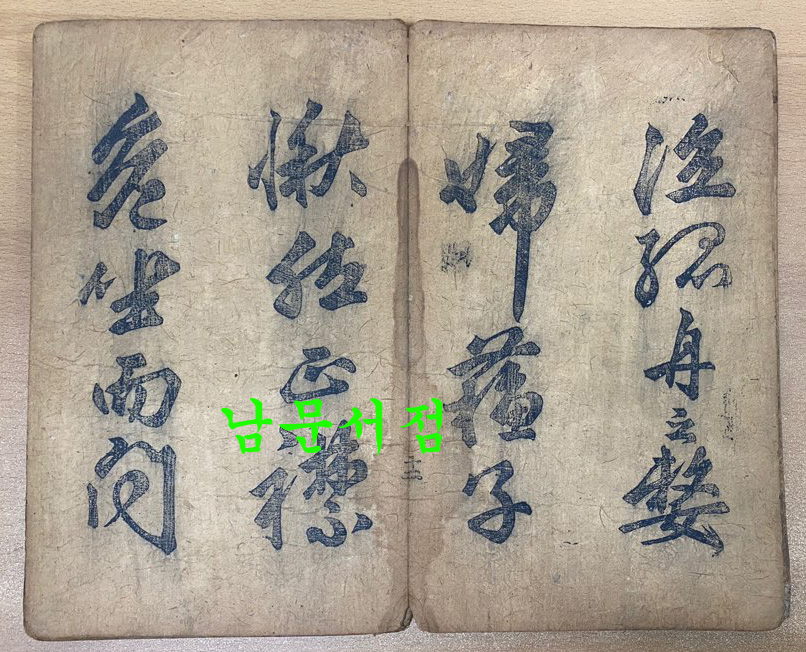 泣孤舟之嫠
婦蘇子
愀然正襟
危坐而問
十二
남문서점